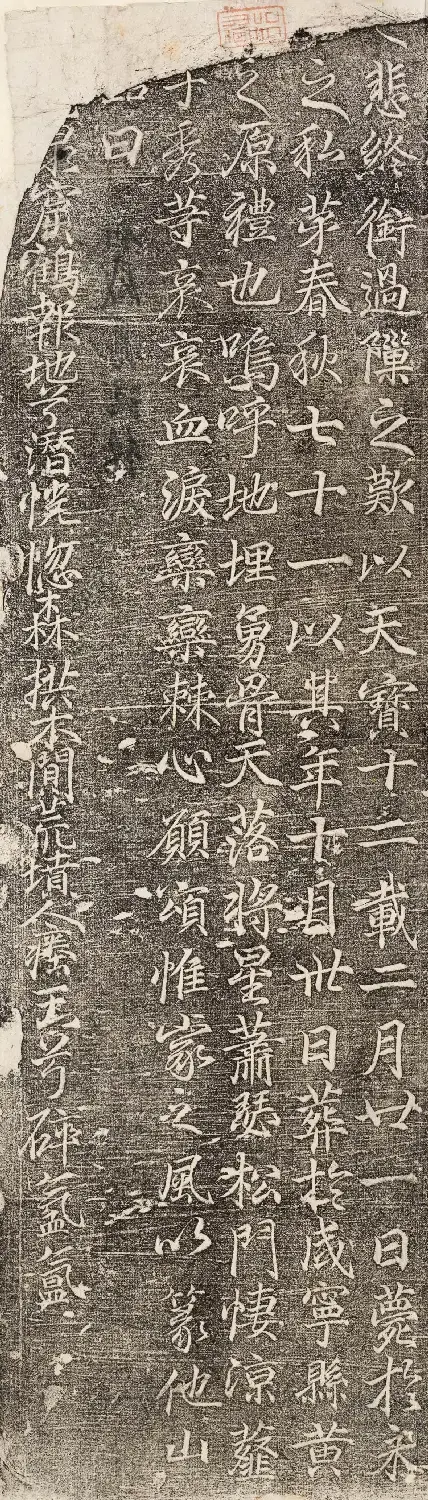 悲終銜過隟之歎以天寶十二載二月廿一日薨於永
之私苐春秋七十一以其年十月卅日葬於咸寧縣黄
之原禮也嗚呼地埋勇骨天落將星蕭瑟松門悽涼薤
子秀等哀哀血淚欒欒棘心願頌惟家之風以篆他山
曰
原窅窅鶴報地兮潛恍惚森拱木閒荒墳人瘞玉兮碎氳氳